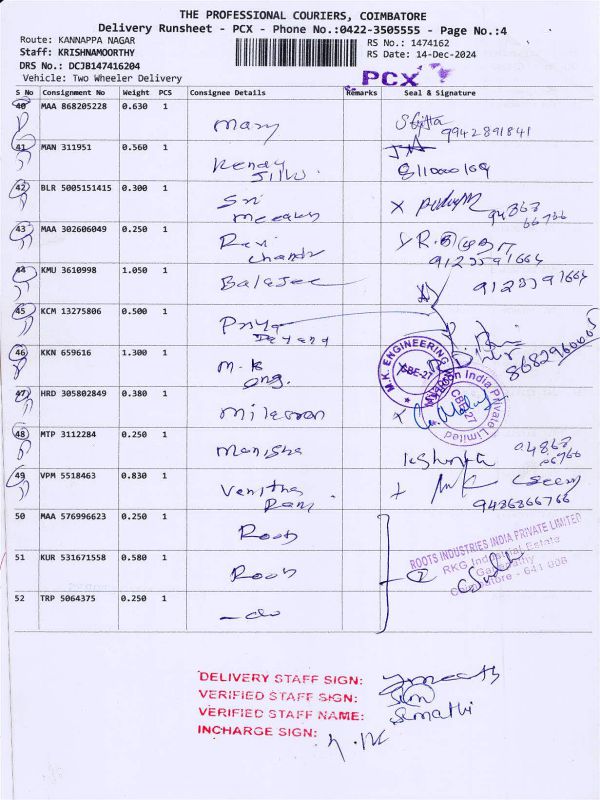 THE PROFESSIONAL COURIERS, COIMBATORE
Delivery Runsheet - PCX - Phone No.:0422-3505555 - Page No.:4
Route: KANNAPPA NAGAR
RS No.: 1474162
Staff: KRISHNAMOORTHY
RS Date: 14-Dec-2024
DRS No.: DCJB147416204
Vehicle: Two Wheeler Delivery
PCX
S No Consignment No Weight PCS Consignee Details Remarks Seal & Signature
40 MAA 868205228 0.630 1 Mary
9942891841
41 MAN 311951 0.560 1
8110000169
42 BLR 5005151415 0.300 1 Sri
94868
66766
43 MAA 302606049 0.250 1 Ravi
Chandr
44 KMU 3610998 1.050 1 Balajee
45 KCM 13275806 0.500 1 Priya
46 KKN 659616 1.300 1 M.K
Eng.
8682960005
M.K. ENGINEERING
CBE-27
47 HRD 305802849 0.380 1 Milesoon
India Private Limited
CBE-27
48 MTP 3112284 0.250 1 Manisha
94868
66766
49 VPM 5518463 0.830 1 Vanitha
Rani
9486866766
50 MAA 576996623 0.250 1 Roots
51 KUR 531671558 0.580 1 Roots
ROOTS INDUSTRIES INDIA PRIVATE LIMITED
RKG Industrial Estate
Ganapathy
Coimbatore - 641 006
52 TRP 5064375 0.250 1 -do
DELIVERY STAFF SIGN:
VERIFIED STAFF SIGN:
VERIFIED STAFF NAME: Sumathi
INCHARGE SIGN: